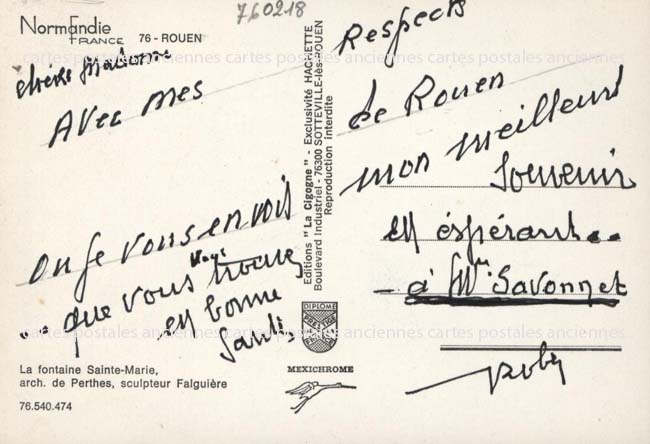 760218
Normandie
FRANCE 76 - ROUEN
chère Madame
Avec mes
Respects
de Rouen
mon meilleurs
Souvenir
en éspérant...
- à Mme Savonnet
On Je vous envois
que vous vous trouvez
en bonne
Santé
Editions "La Cigogne" - Exclusivité HACHETTE
Boulevard Industriel - 76300 SOTTEVILLE-lès-ROUEN
Reproduction interdite
DIPLOME
MEXICHROME
La fontaine Sainte-Marie,
arch. de Perthes, sculpteur Falguière
76.540.474
cartes postales anciennes cartes postales anciennes